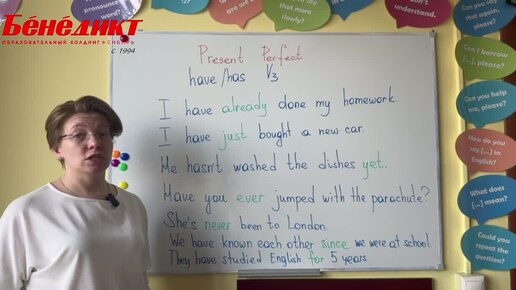 Бе́не́дикт
ОБРАЗОВАТЕЛЬНЫЙ ХОЛДИНГ•СИБИРЬ
с 1994
pronounce
word?
that more
slowly?
understand.
Can you
say that
again,
please?
Can I borrow
[...], please?
Can you help
me, please?
How do you
say [...] in
English?
What does
[...] mean?
Could you
repeat the
question?
Present Perfect
have/has V3
I have already done my homework.
I have just bought a new car.
He hasn't washed the dishes yet.
Have you ever jumped with the parachute?
She's never been to London.
We have known each other since we were at school
They have studied English for 5 years